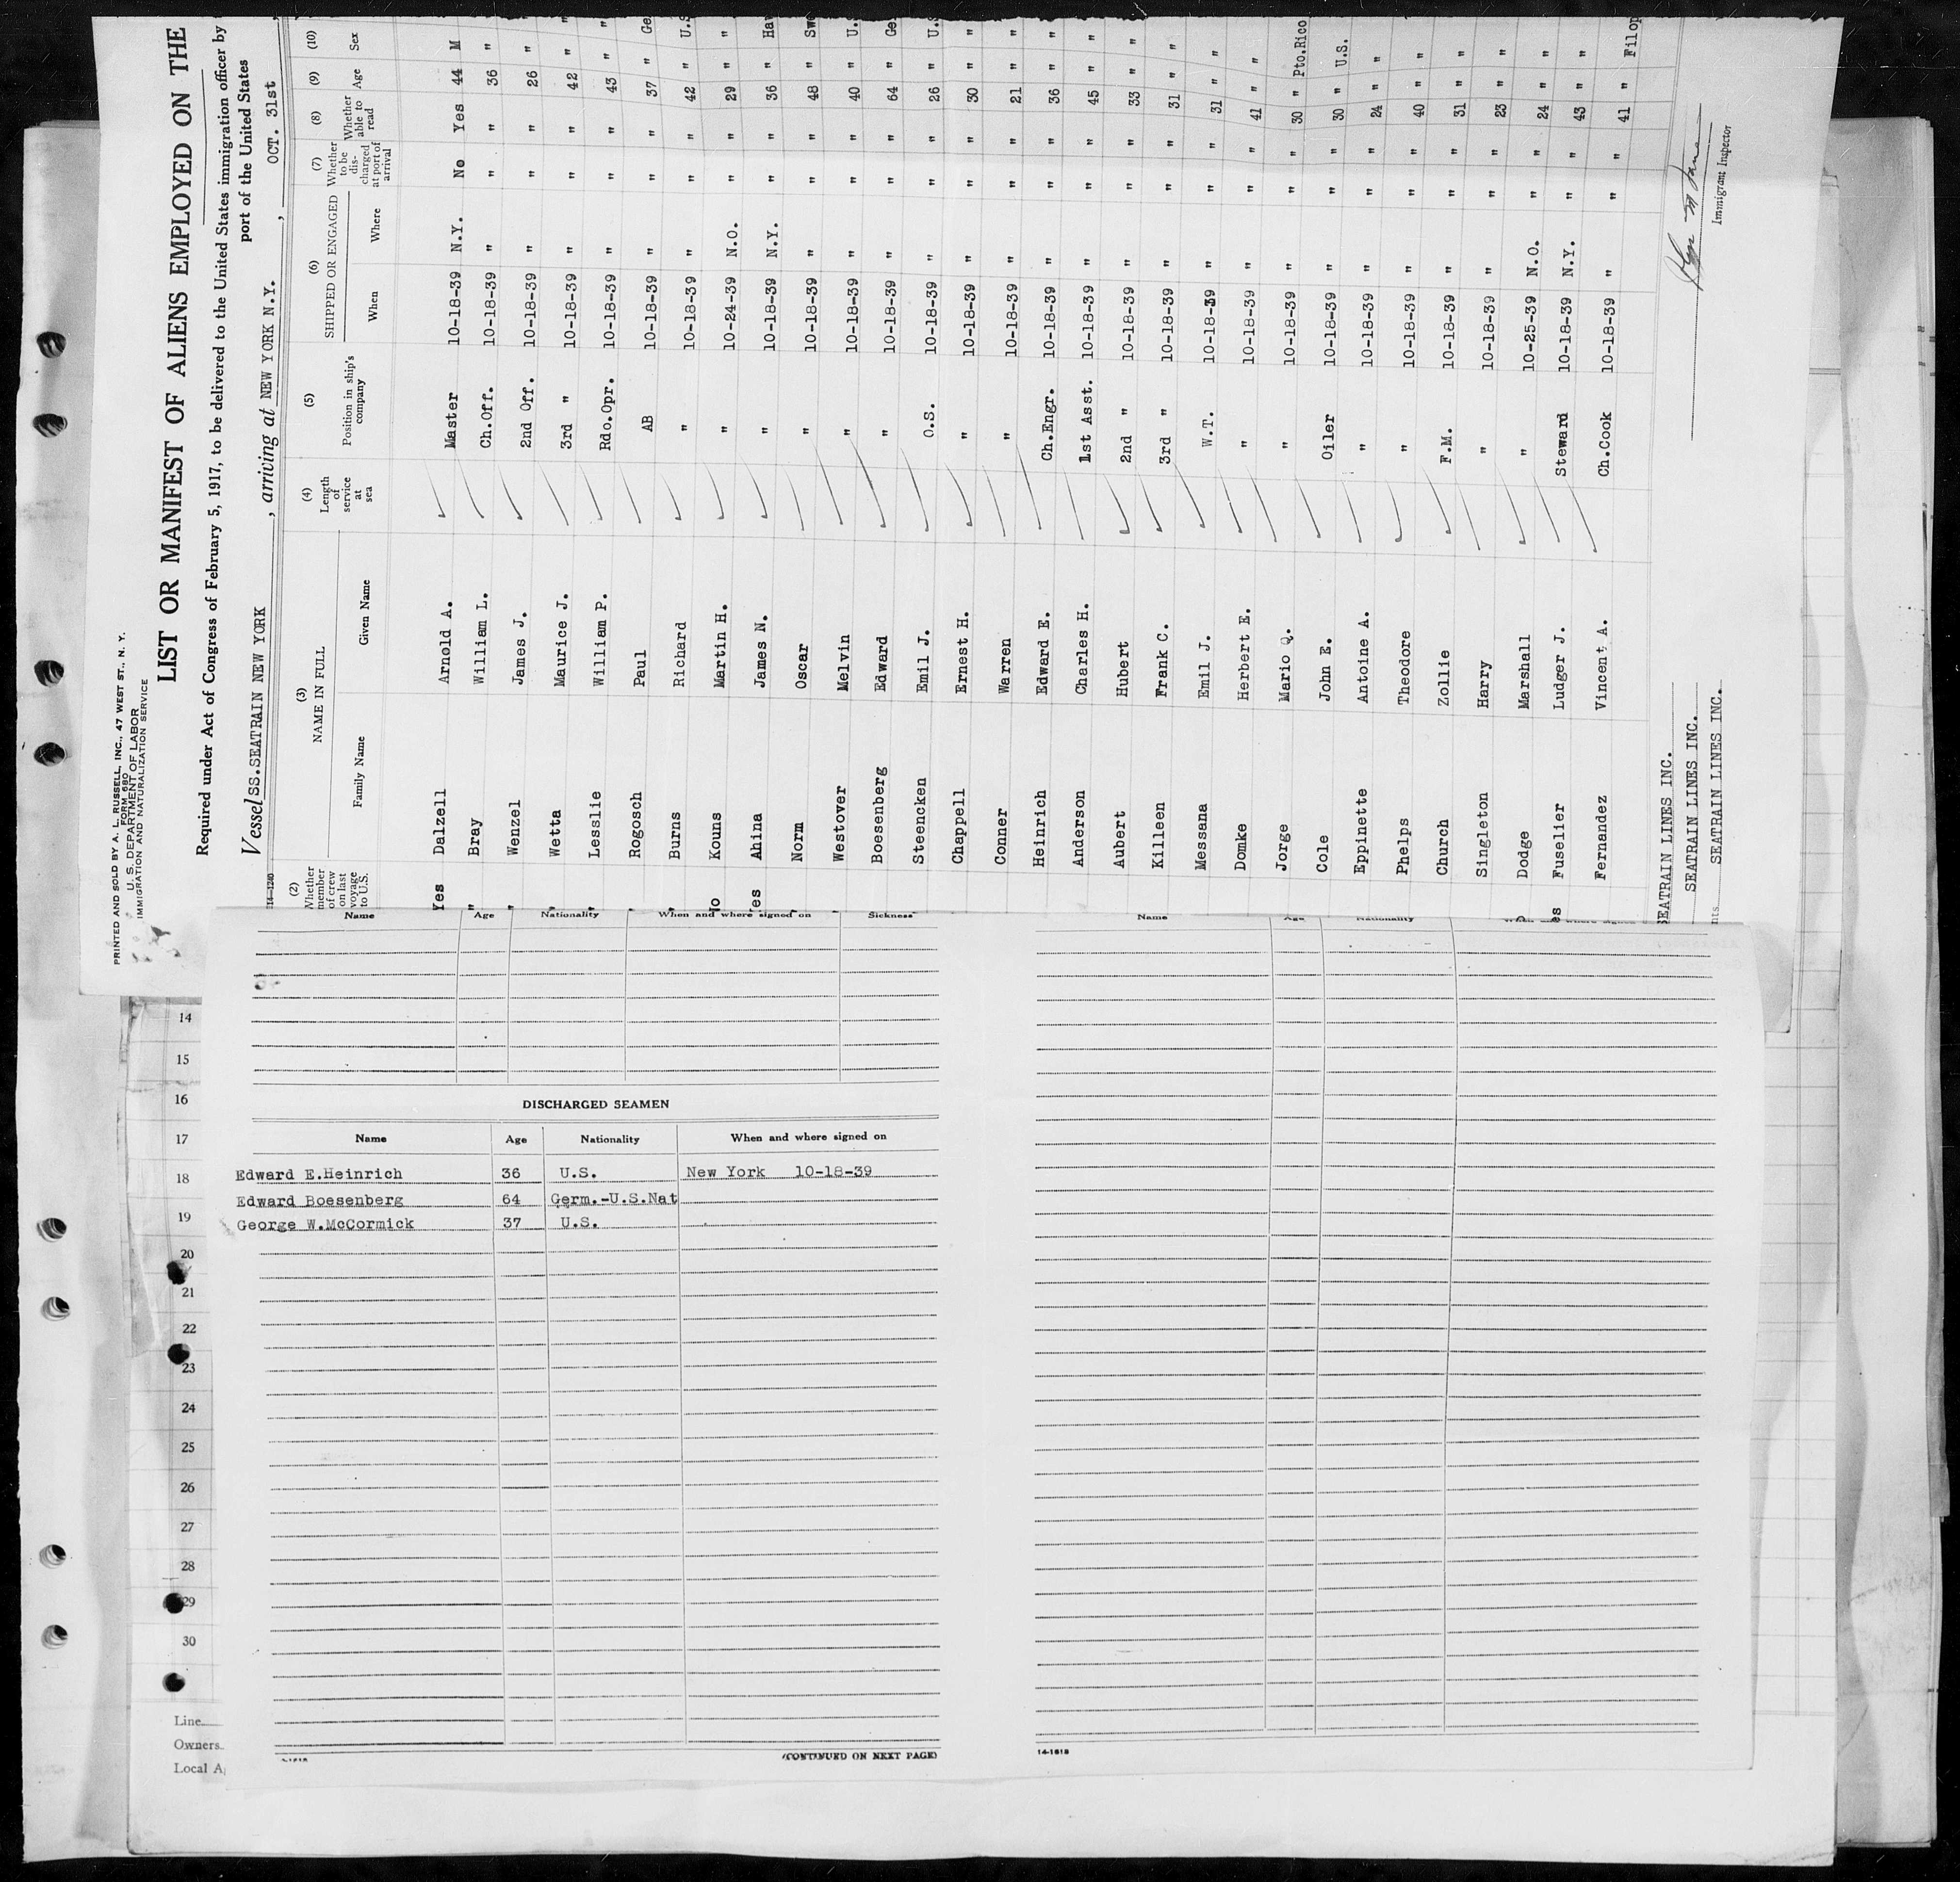 PRINTED AND SOLD BY A. L. RUSSELL, INC., 47 WEST ST., N. Y.
FORM 680
U. S. DEPARTMENT OF LABOR
IMMIGRATION AND NATURALIZATION SERVICE
LIST OR MANIFEST OF ALIENS EMPLOYED ON THE
Required under Act of Congress of February 5, 1917, to be delivered to the United States immigration officer by
port of the United States
Vessel SS.SEATRAIN NEW YORK , arriving at NEW YORK N.Y. , OCT. 31st
14-1240
(2) Whether member of crew on last voyage to U.S. (3) NAME IN FULL Family Name Given Name (4) Length of service at sea (5) Position in ship's company (6) SHIPPED OR ENGAGED When Where (7) Whether to be discharged at port of arrival (8) Whether able to read (9) Age (10) Sex
Yes Dalzell Arnold A. Master 10-18-39 N.Y. No Yes 44 M
" Bray William L. Ch.Off. 10-18-39 " " " 36 "
" Wenzel James J. 2nd Off. 10-18-39 " " " 26 "
" Wetta Maurice J. 3rd " 10-18-39 " " " 42 "
" Lesslie William P. Rdo.Opr. 10-18-39 " " " 43 "
" Rogosch Paul AB 10-18-39 " " " 37 " Ge
" Burns Richard " 10-18-39 " " " 42 " U.S
No Kouns Martin H. " 10-24-39 N.O. " " 29 " "
es Ahina James N. " 10-18-39 N.Y. " " 36 " Haw
Norm Oscar " 10-18-39 " " " 48 " Swe
Westover Melvin " 10-18-39 " " " 40 " U.
Boesenberg Edward " 10-18-39 " " " 64 " Ge
Steencken Emil J. O.S. 10-18-39 " " " 26 " U.S
Chappell Ernest H. " 10-18-39 " " " 30 " "
Conner Warren " 10-18-39 " " " 21 " "
Heinrich Edward E. Ch.Engr. 10-18-39 " " " 36 " "
Anderson Charles H. 1st Asst. 10-18-39 " " " 45 " "
Aubert Hubert 2nd " 10-18-39 " " " 33 " "
Killeen Frank C. 3rd " 10-18-39 " " " 31 " "
Messana Emil J. W.T. 10-18-39 " " " 31 " "
Domke Herbert E. " 10-18-39 " " " 41 " "
Jorge Mario Q. " 10-18-39 " " " 30 " Pto.Rico
Cole John E. Oiler 10-18-39 " " " 30 " U.S.
Eppinette Antoine A. " 10-18-39 " " " 24 " "
Phelps Theodore " 10-18-39 " " " 40 " "
Church Zollie F.M. 10-18-39 " " " 31 " "
Singleton Harry " 10-18-39 " " " 23 " "
Dodge Marshall " 10-25-39 N.O. " " 24 " "
es Fuselier Ludger J. Steward 10-18-39 N.Y. " " 43 " "
Fernandez Vincent A. Ch.Cook 10-18-39 " " " 41 " Filop
SEATRAIN LINES INC.
SEATRAIN LINES INC.
SEATRAIN LINES INC.
Immigrant Inspector
Name Age Nationality When and where signed on Sickness
Name Age Nationality When and where signed
DISCHARGED SEAMEN
Name Age Nationality When and where signed on
Edward E.Heinrich 36 U.S. New York 10-18-39
Edward Boesenberg 64 Germ.-U.S.Nat
George W.McCormick 37 U.S.
14
15
16
17
18
19
20
21
22
23
24
25
26
27
28
29
30
Line
Owners
Local A
(CONTINUED ON NEXT PAGE)
14-1618